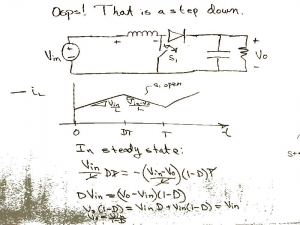 Oops! That is a step down.
+
Vin
S1
+
Vo
-
iL
S1 open
Vin/L
Vin-Vo/L
0 DT T t
In steady state:
Vin/L DT = -(Vin-Vo/L)(1-D)T
DVin = (Vo-Vin)(1-D)
Vo(1-D) = VinD + Vin(1-D) = Vin